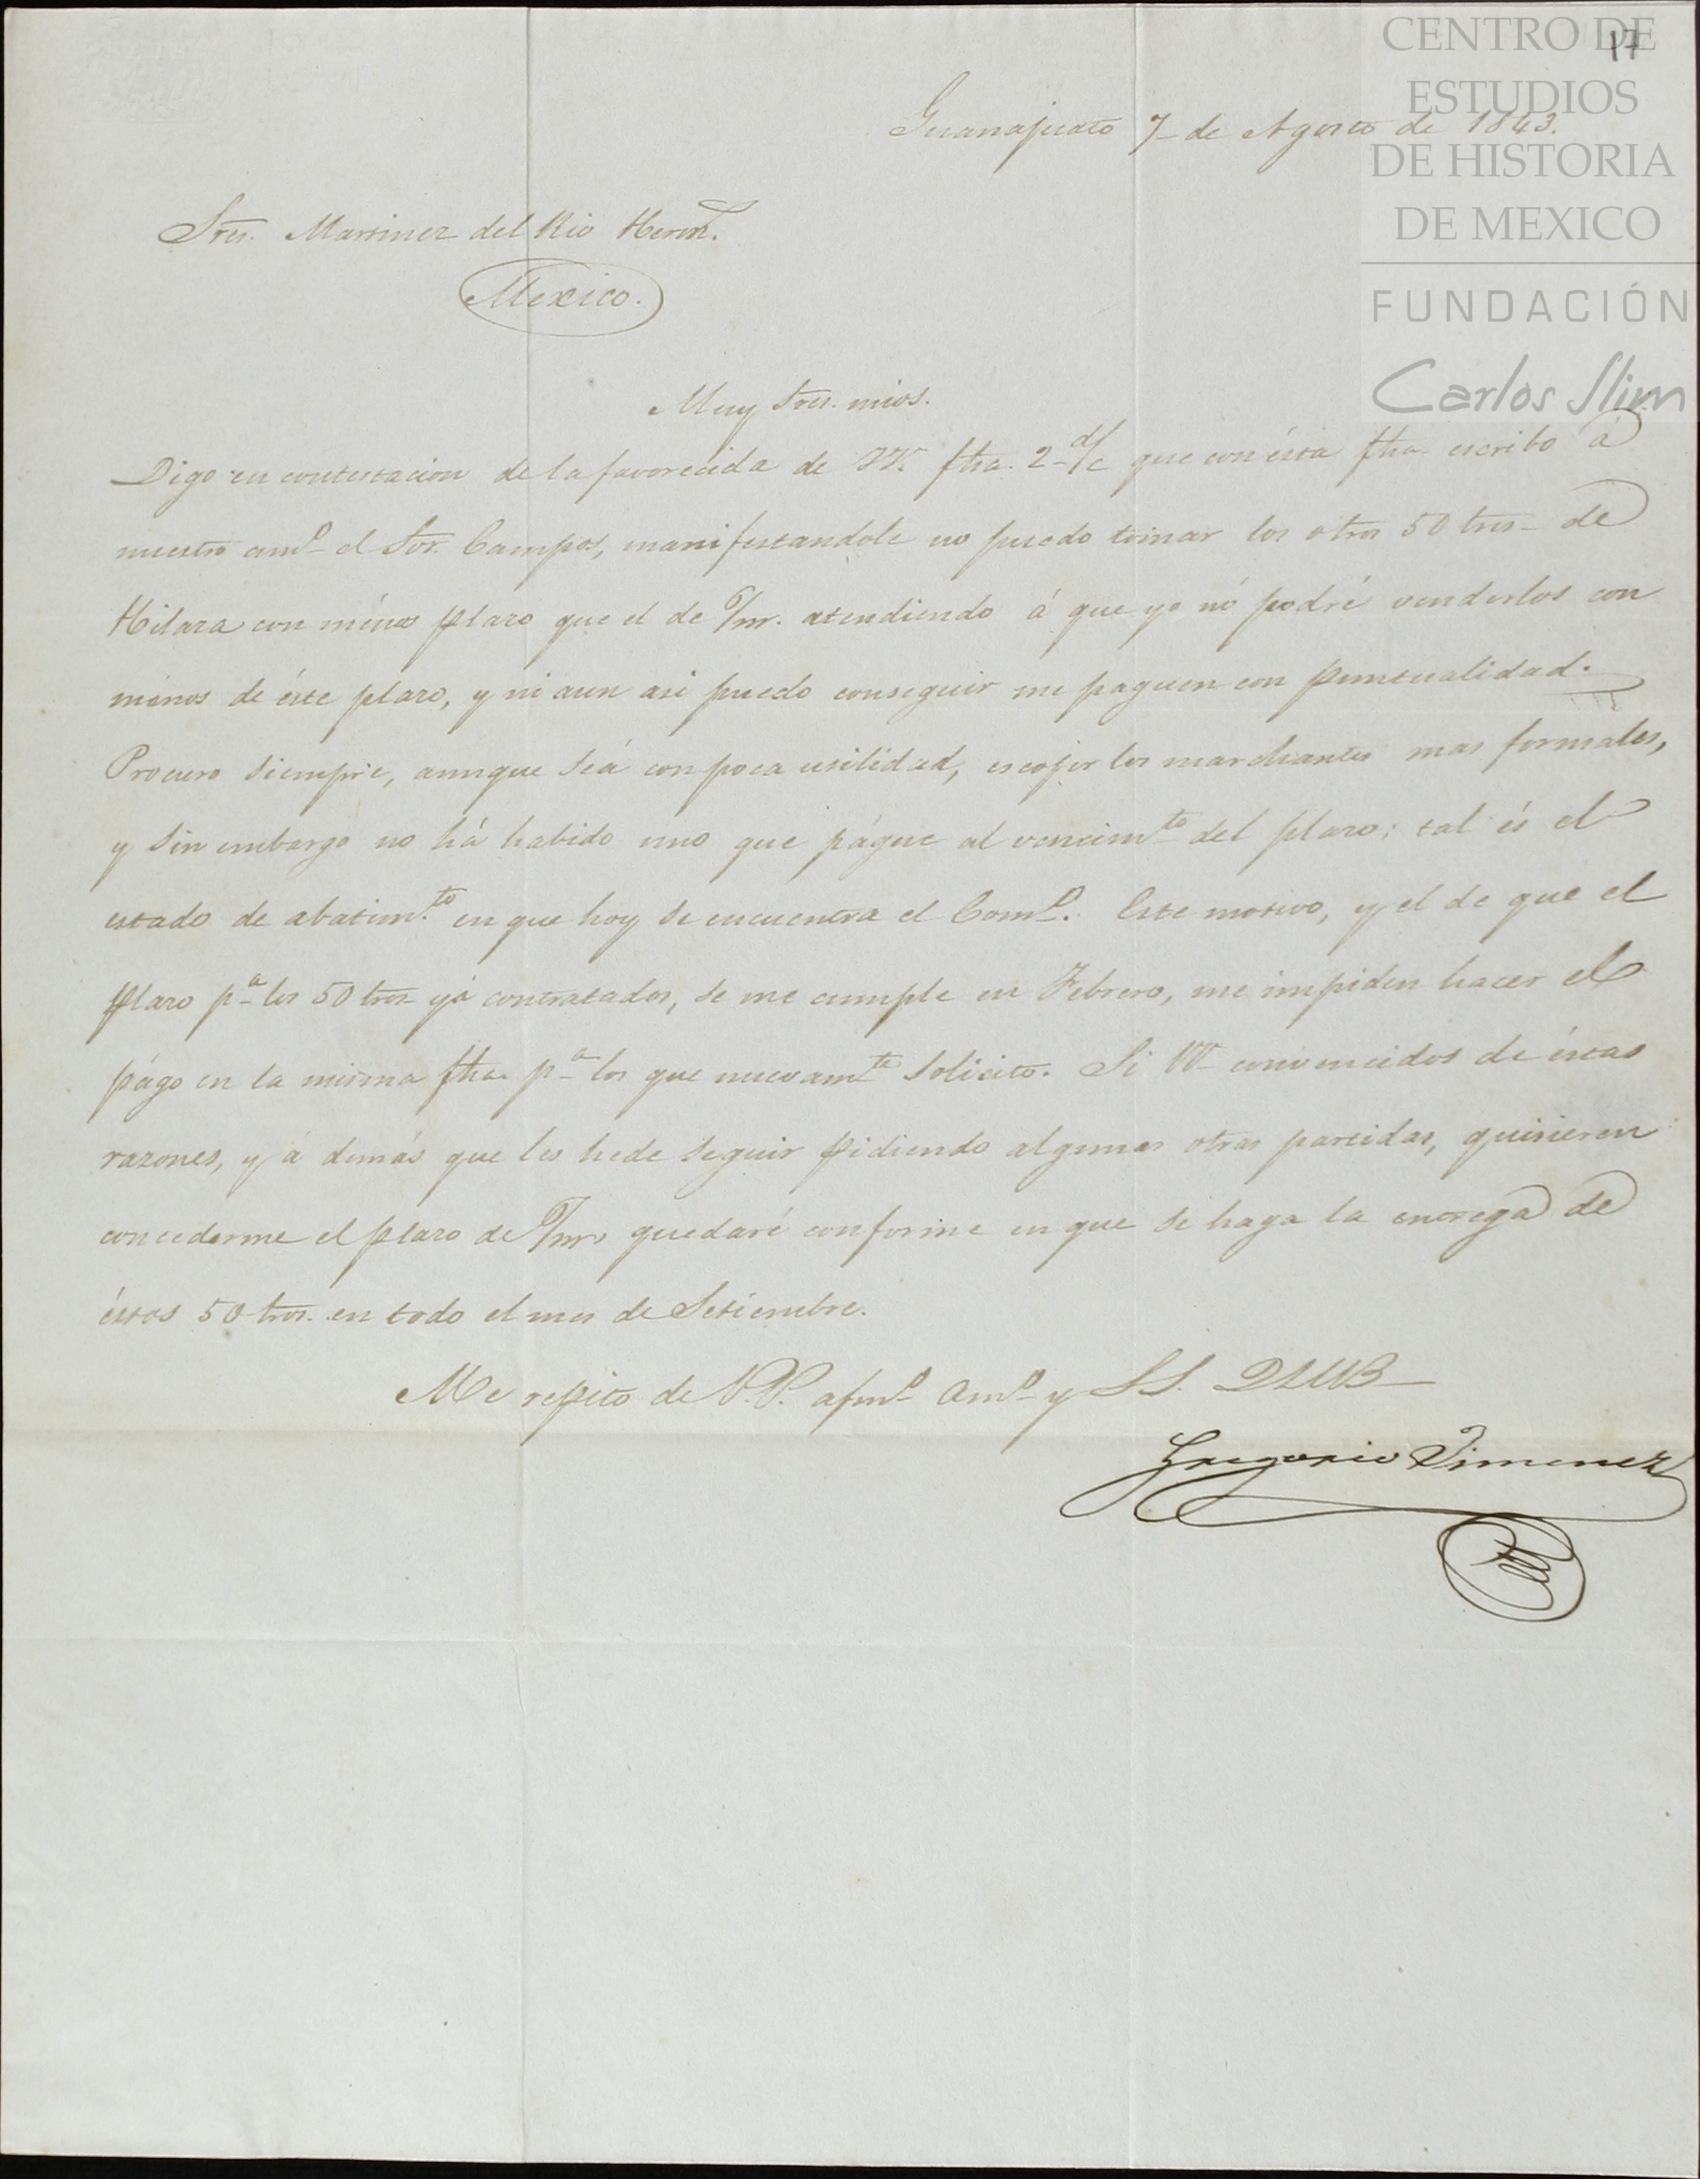 CENTRO DE
ESTUDIOS
DE HISTORIA
DE MEXICO
FUNDACIÓN
Carlos Slim
17
Guanajuato 7 de Agosto de 1843.
Sres. Martinez del Rio Herms.
Mexico.
Muy Sres. mios.
Digo en contestacion de la favorecida de VV. fha. 2 d/c que con ésta fha. escribo á
nuestro amo. el Sor. Campos, manifestandole no puedo tomar los otros 50 tros. de
Hilaza con ménos plazo que el de 6/m. atendiendo á que yo nó podré venderlos con
ménos de éste plazo, y ni aun asi puedo conseguir me paguen con puntualidad.
Procuro siempre, aunque séa con poca utilidad, escojer los marchantes mas formales,
y sin embargo no há habido uno que págue al vencimto. del plazo; tal és el
estado de abatimto. en que hoy se encuentra el Como. Este motivo, y el de que el
plazo pa. los 50 tros. yá contratados, se me cumple en Febrero, me impiden hacer el
págo en la misma fha. pa. los que nuevamte. solicito. Si VV. convencidos de éstas
razones, y á demás que les hede seguir pidiendo algunas otras partidas, quisieren
concederme el plazo de 6/m. quedaré conforme en que se haga la entrega de
éstos 50 tros. en todo el mes de Setiembre.
Me repito de V.V. afmo. amo. y SS. QSMB
Gregorio Jimenez